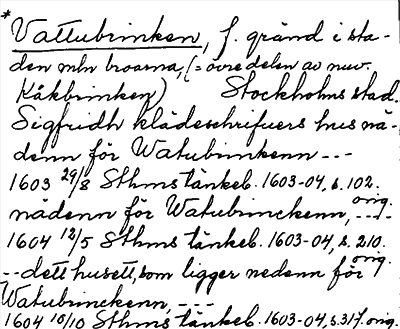 *
Vattubrinken, f. gränd i sta-
den mln broarna, (= övre delen av nuv.
Kåkbrinken) Stockholms stad.
Sigfridh klädeschrifuers hus nä-
denn för Watubrinkenn ---
1603 29/8 Sthms tänkeb. 1603-04, s. 102.
orig.
nädenn för Watubrinckenn, ---
1604 12/5 Sthms tänkeb. 1603-04, s. 210.
orig.
-- dett husett, som ligger nedenn för
Watubrinckenn, ---
1604 10/10 Sthms tänkeb. 1603-04, s. 317. orig.